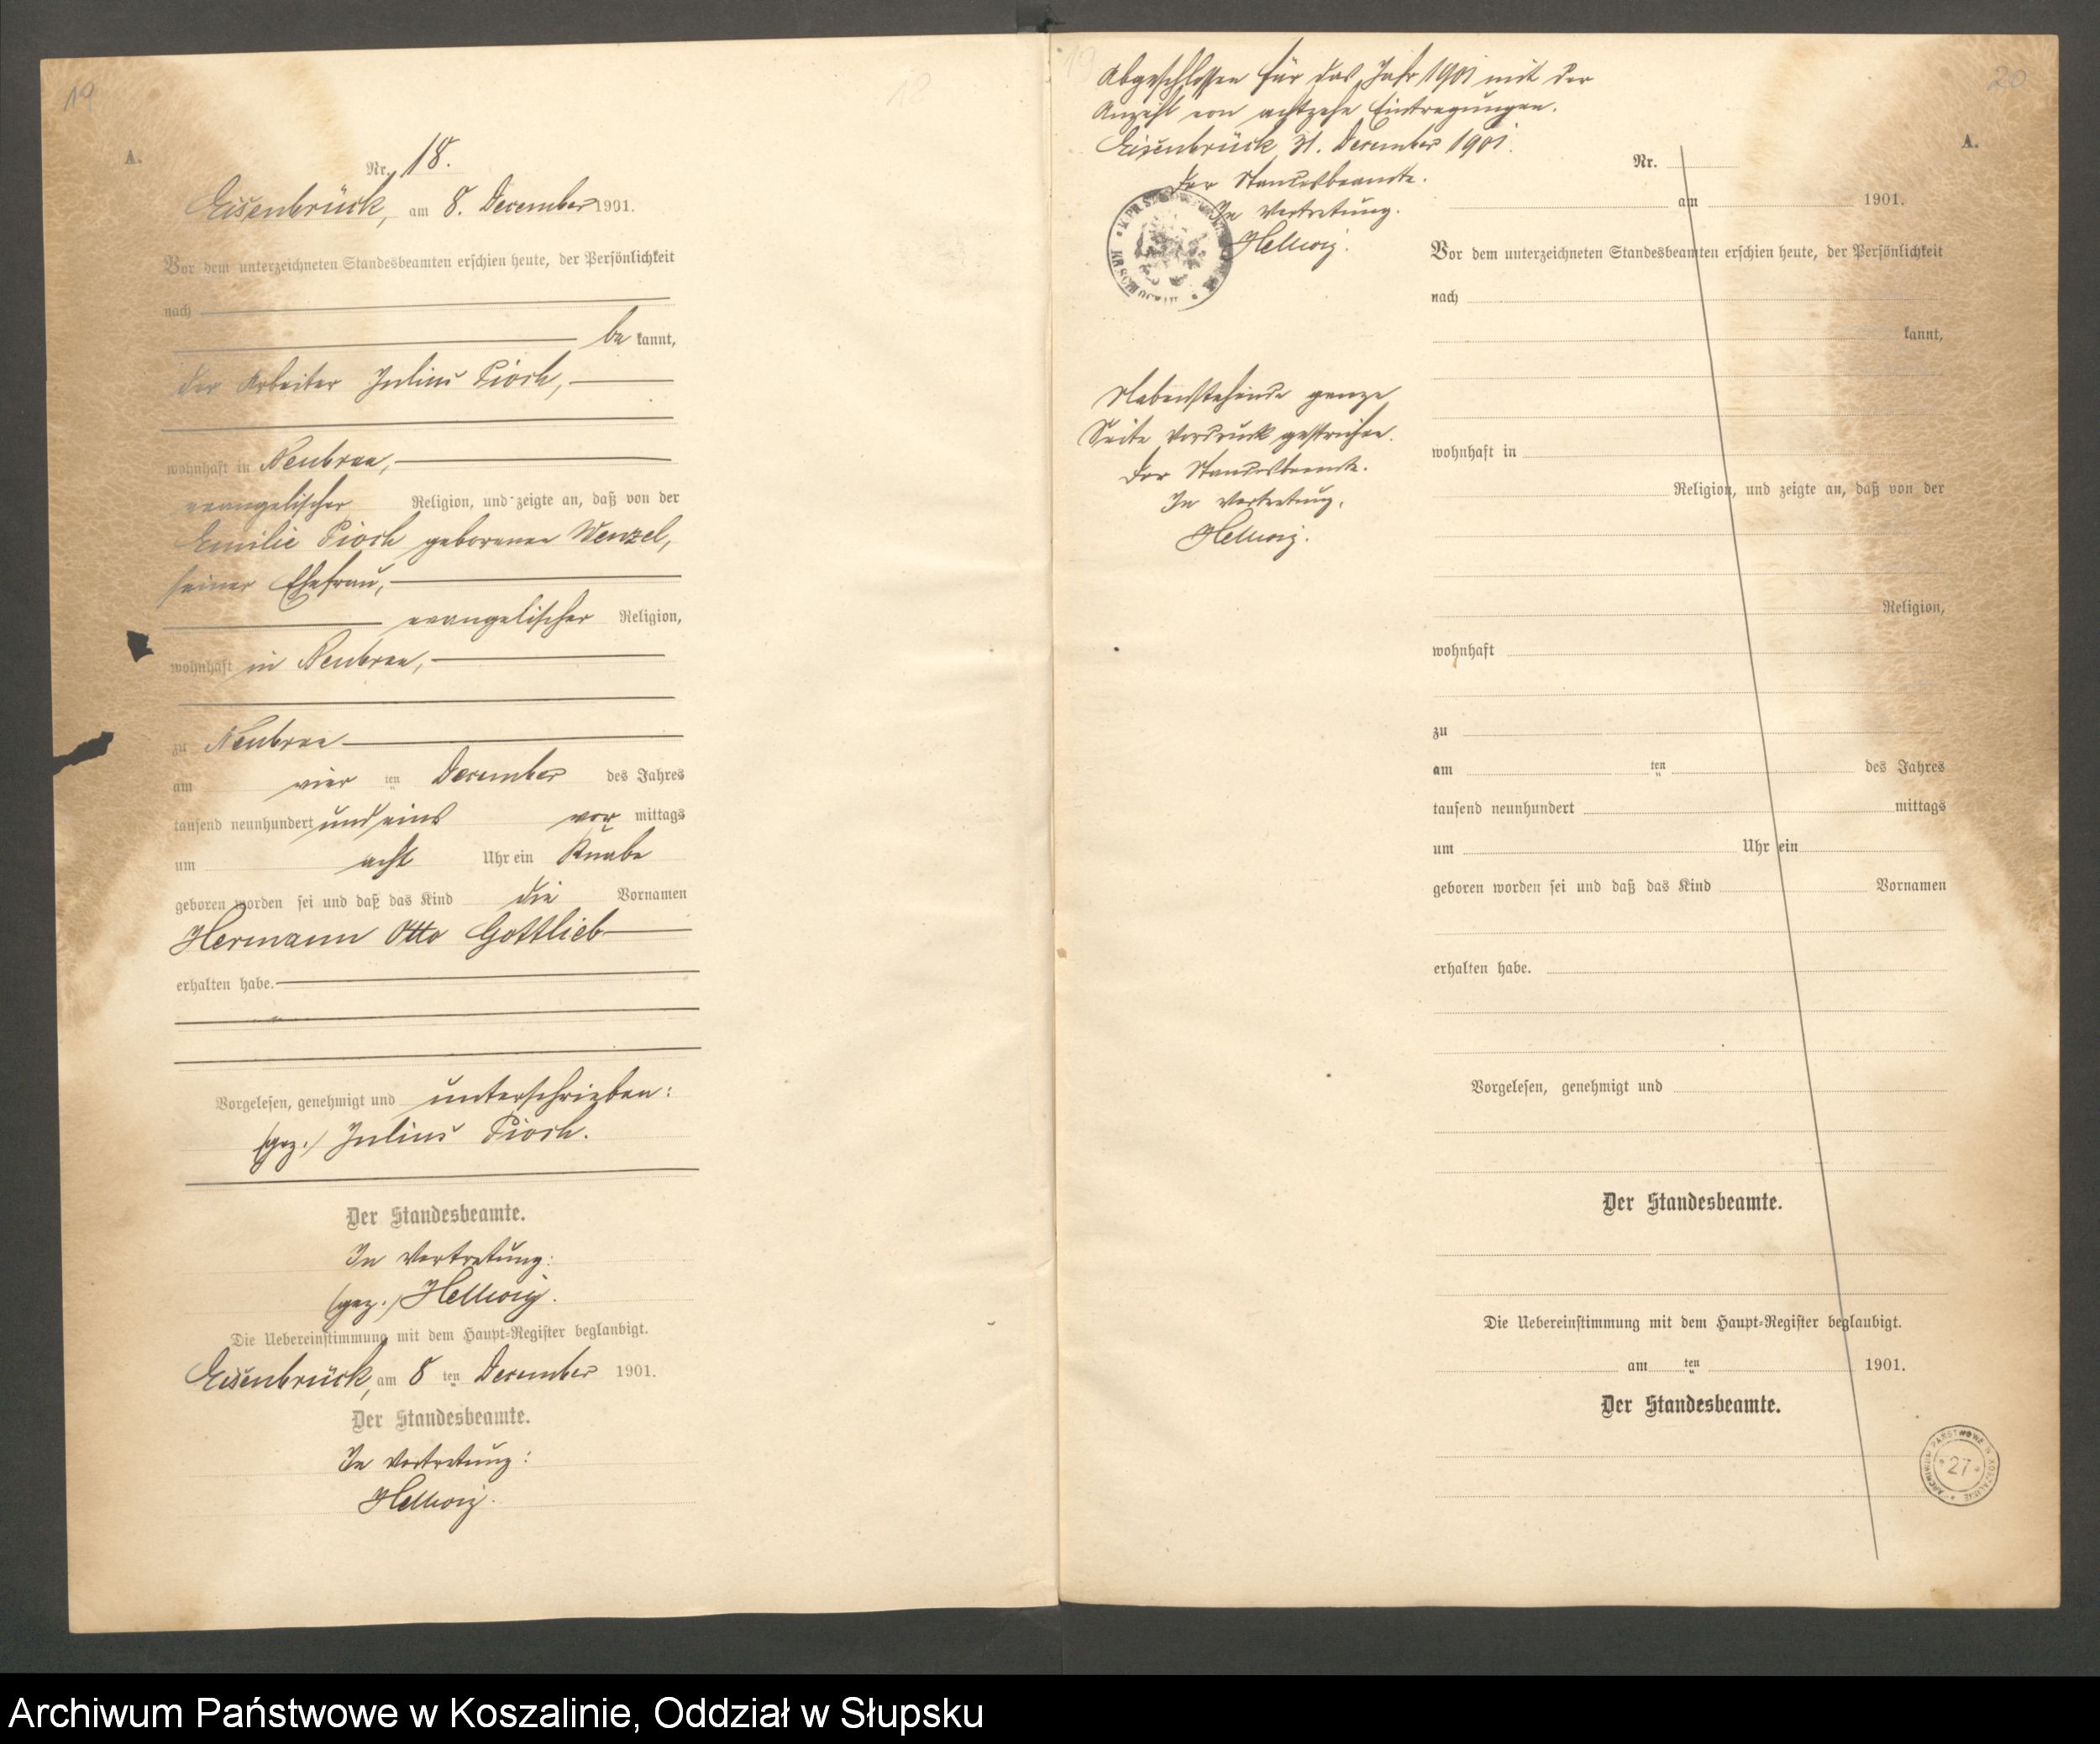 19
18
A.
Nr. 18.
Eisenbrück, am 8. December 1901.
Vor dem unterzeichneten Standesbeamten erschien heute, der Persönlichkeit
nach
be kannt,
der Arbeiter Julius Pioch,
wohnhaft in Neubraa,
evangelischer Religion, und zeigte an, daß von der
Emilie Pioch geborenen Wenzel,
seiner Ehefrau,
evangelischer Religion,
wohnhaft in Neubraa,
zu Neubraa
am vier ten December des Jahres
tausend neunhundert und eins vor mittags
um acht Uhr ein Knabe
geboren worden sei und daß das Kind die Vornamen
Hermann Otto Gottlieb
erhalten habe.
Vorgelesen, genehmigt und unterschrieben:
(gez.) Julius Pioch.
Der Standesbeamte.
In Vertretung:
(gez.) Hellwig.
Die Uebereinstimmung mit dem Haupt-Register beglaubigt.
Eisenbrück, am 8 ten December 1901.
Der Standesbeamte.
In Vertretung:
Hellwig.
19
Abgeschlossen für das Jahr 1901 mit der
Anzahl von achtzehn Eintragungen.
Eisenbrück, 31. December 1901.
Der Standesbeamte.
In Vertretung.
Hellwig.
Nebenstehende ganze
Seite Vordruck gestrichen.
Der Standesbeamte.
In Vertretung.
Hellwig.
20
A.
Nr.
am 1901.
Vor dem unterzeichneten Standesbeamten erschien heute, der Persönlichkeit
nach
kannt,
wohnhaft in
Religion, und zeigte an, daß von der
Religion,
wohnhaft
zu
am ten des Jahres
tausend neunhundert mittags
um Uhr ein
geboren worden sei und daß das Kind Vornamen
erhalten habe.
Vorgelesen, genehmigt und
Der Standesbeamte.
Die Uebereinstimmung mit dem Haupt-Register beglaubigt.
am ten 1901.
Der Standesbeamte.
ARCHIWUM PAŃSTWOWE W KOSZALINIE
27
Archiwum Państwowe w Koszalinie, Oddział w Słupsku